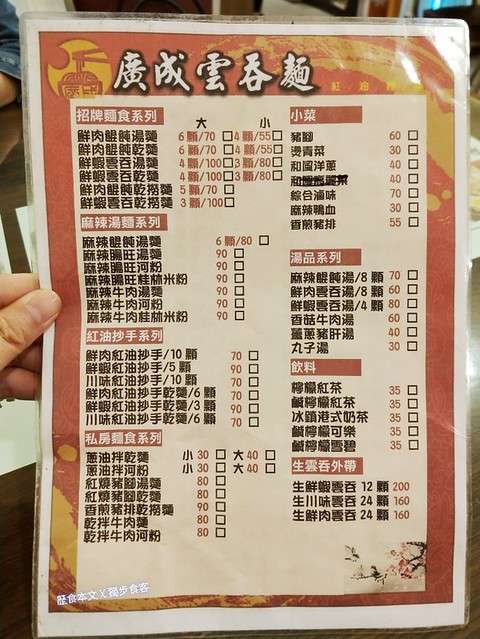 廣成雲吞麵
招牌麵食系列 大 小
鮮肉餛飩湯麵 6顆/70 □ 4顆/55 □
鮮肉餛飩乾麵 6顆/70 □ 4顆/55 □
鮮蝦雲吞湯麵 4顆/100 □ 3顆/80 □
鮮蝦雲吞乾麵 4顆/100 □ 3顆/80 □
鮮肉餛飩乾撈麵 5顆/70 □
鮮蝦雲吞乾撈麵 3顆/100 □
麻辣湯麵系列
麻辣餛飩湯麵 6顆/80 □
麻辣腸旺湯麵 90 □
麻辣腸旺河粉 90 □
麻辣腸旺桂林米粉 90 □
麻辣牛肉湯麵 90 □
麻辣牛肉河粉 90 □
麻辣牛肉桂林米粉 90 □
紅油抄手系列
鮮肉紅油抄手/10顆 70 □
鮮蝦紅油抄手/5顆 90 □
川味紅油抄手/10顆 70 □
鮮肉紅油抄手乾麵/6顆 70 □
鮮蝦紅油抄手乾麵/3顆 90 □
川味紅油抄手乾麵/6顆 70 □
私房麵食系列
蔥油拌乾麵 小30 □ 大40 □
蔥油拌河粉 小30 □ 大40 □
紅燒豬腳湯麵 80 □
紅燒豬腳乾麵 80 □
香煎豬排乾撈麵 90 □
乾拌牛肉麵 80 □
乾拌牛肉河粉 80 □
小菜
豬腳 60 □
燙青菜 30 □
和風洋蔥 40 □
40 □
綜合滷味 70 □
麻辣鴨血 30 □
香煎豬排 55 □
湯品系列
麻辣餛飩湯/8顆 70 □
鮮肉雲吞湯/8顆 60 □
鮮蝦雲吞湯/4顆 80 □
香菇牛肉湯 60 □
薑蔥豬肝湯 40 □
丸子湯 30 □
飲料
檸檬紅茶 35 □
鹹檸檬紅茶 35 □
冰鎮港式奶茶 35 □
鹹檸檬可樂 35 □
鹹檸檬雪碧 35 □
生雲吞外帶
生鮮蝦雲吞 12顆 200
生川味雲吞 24顆 160
生鮮肉雲吞 24顆 160
歷食本文X獨步食客